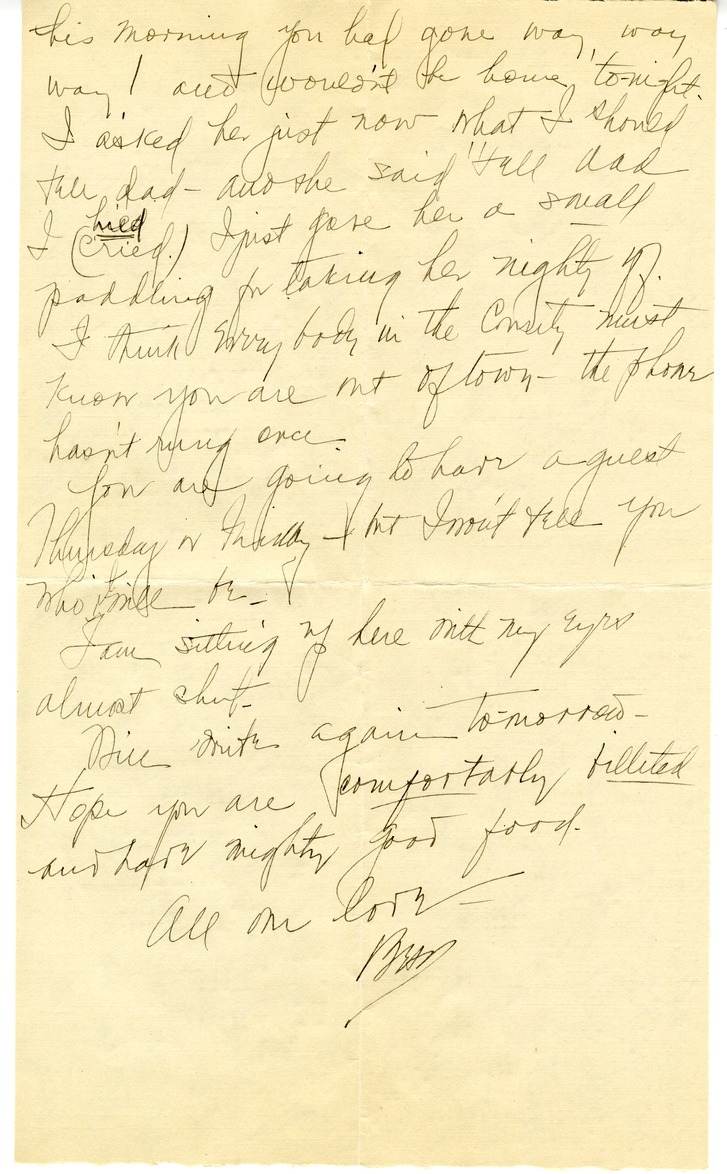 this morning you had gone way, way
way! and wouldn't be home, to-night.
I asked her just now what I should
tell dad - and she said "tell dad
I hied (cried.) I just gave her a small
paddling for taking her nighty off.
I think everybody in the County must
know you are out of town - the phone
hasn't rung once.
You are going to have a guest
Thursday or Friday - but I won't tell you
who it will be -
I am sitting up here with my eyes
almost shut -
Will write again to-morrow -
Hope you are comfortably billeted
and have mighty good food.
All our love -
Bess